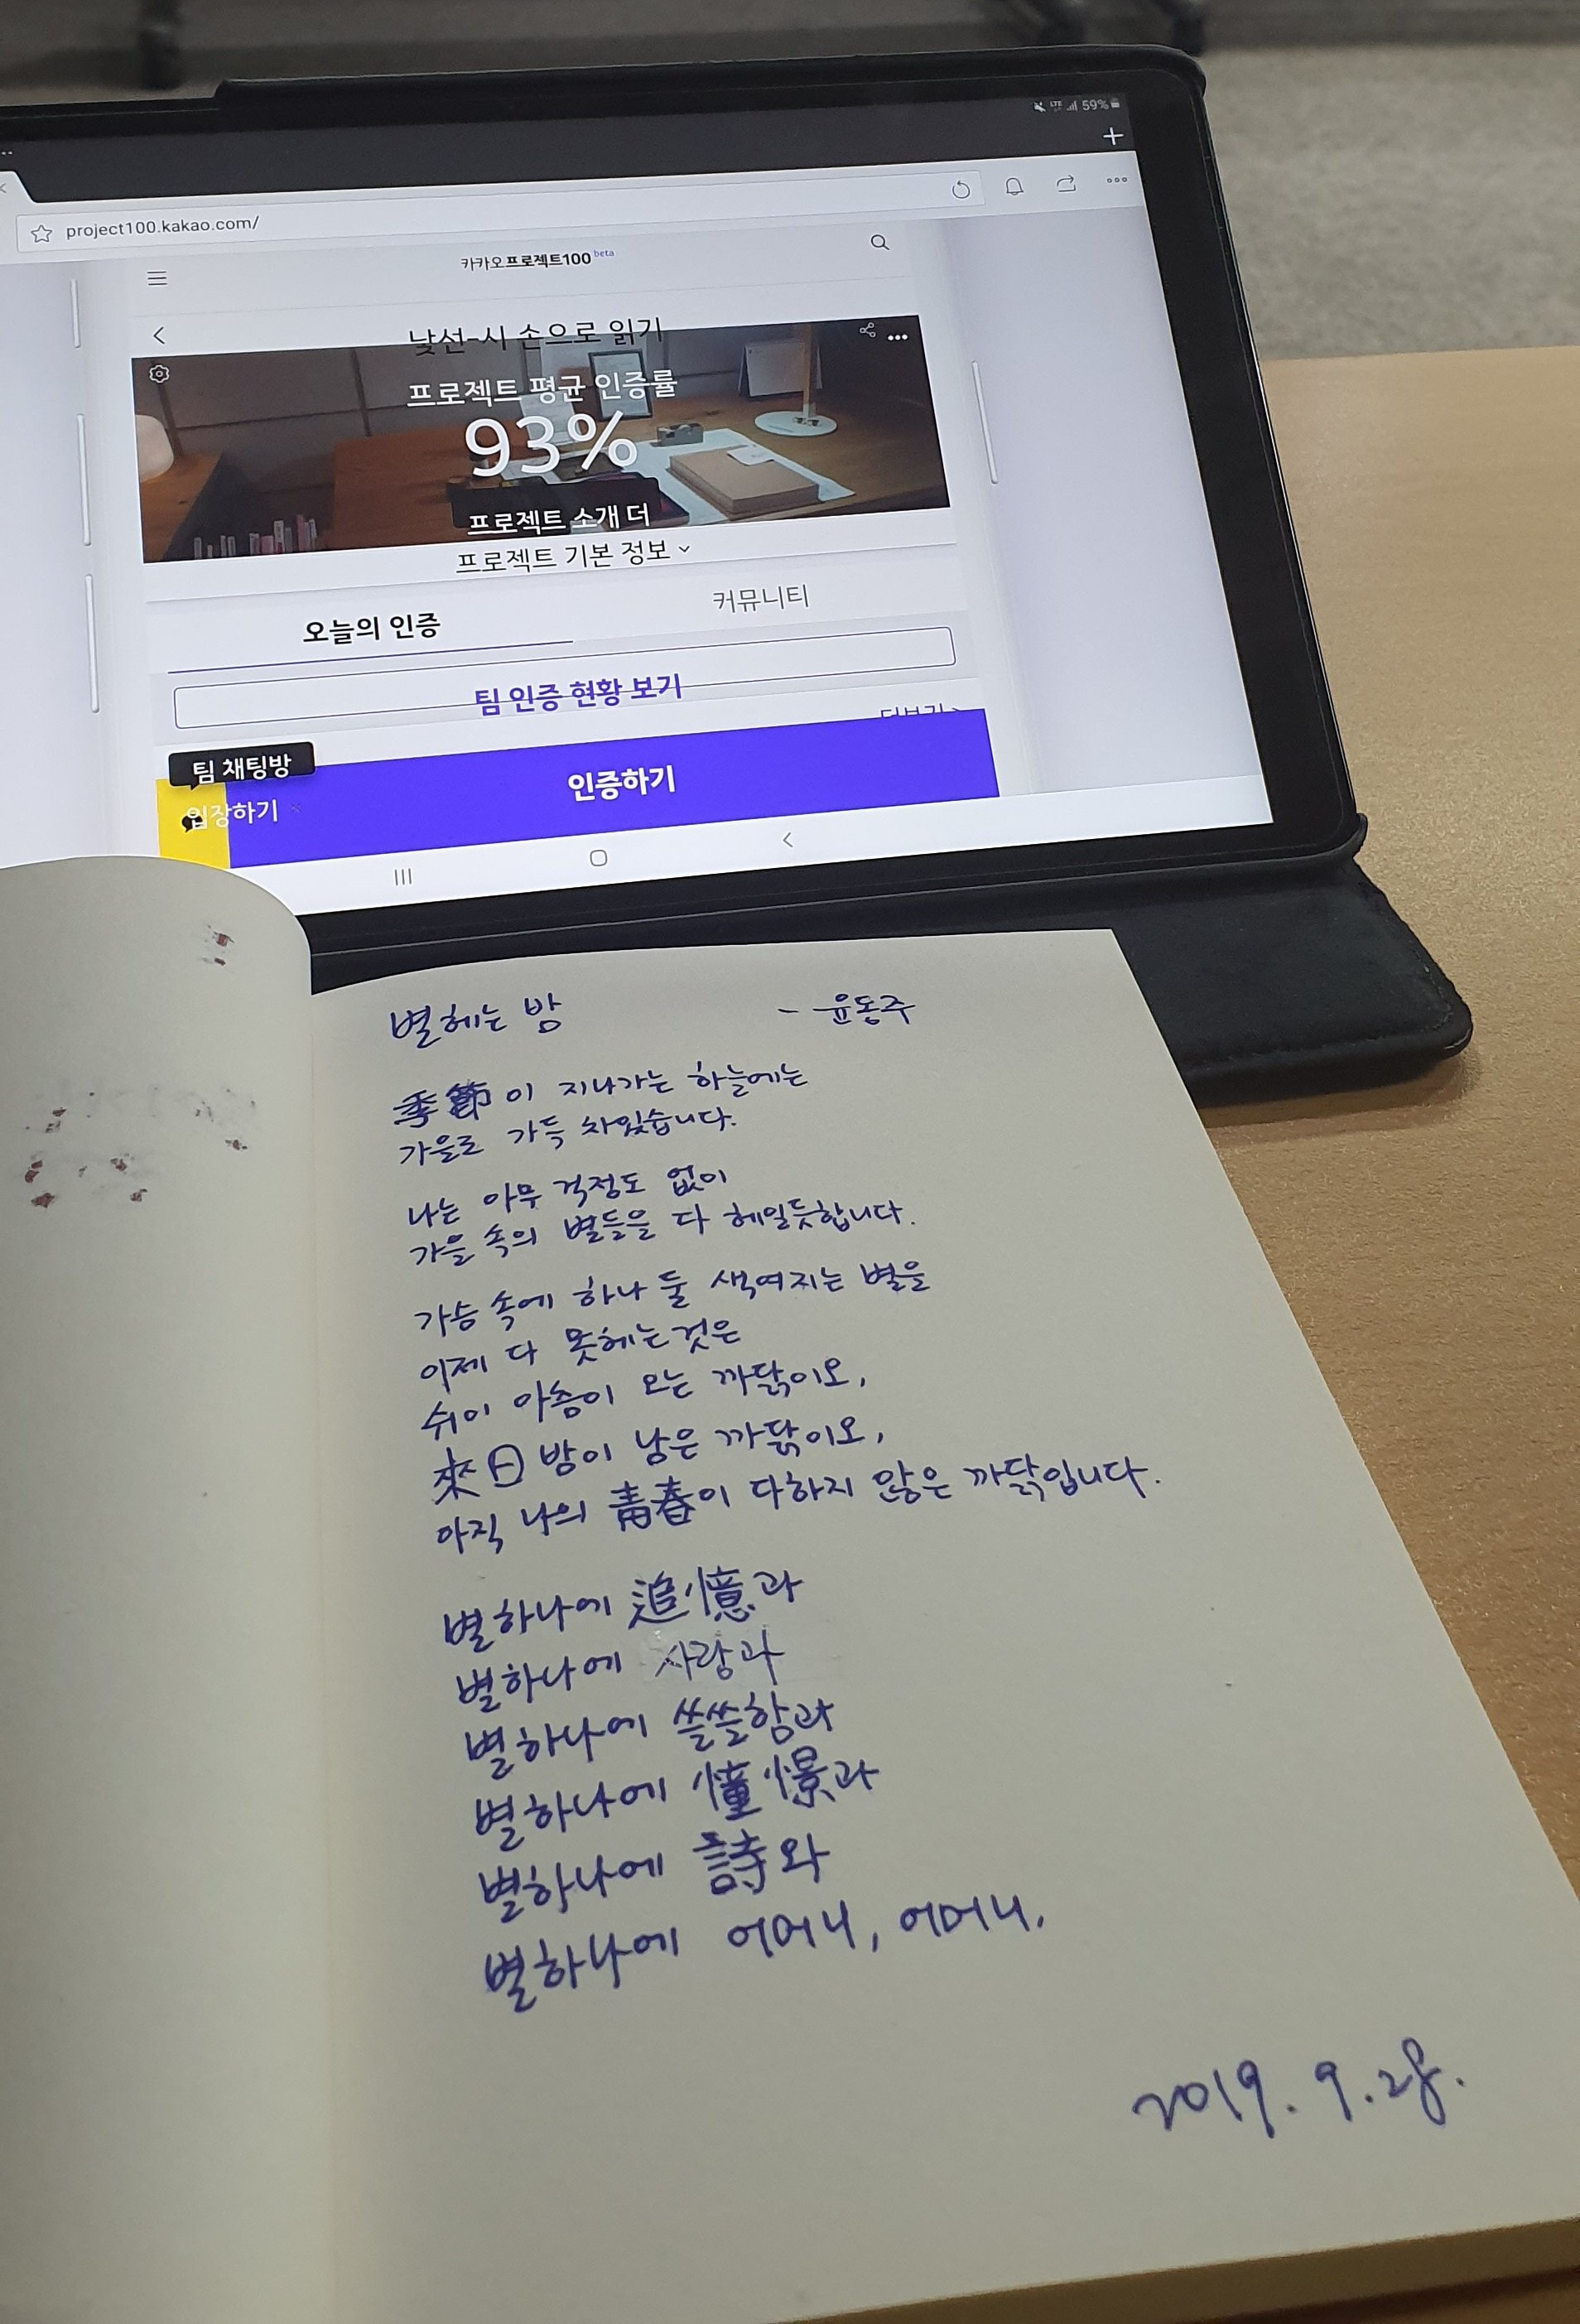 LTE 59%
project100.kakao.com/
카카오프로젝트100 beta
낯선-시 손으로 읽기
프로젝트 평균 인증률
93%
프로젝트 소개 더
프로젝트 기본 정보
오늘의 인증
커뮤니티
팀 인증 현황 보기
더보기 >
팀 채팅방
입장하기
인증하기
별헤는 밤 - 윤동주
季節이 지나가는 하늘에는
가을로 가득 차있습니다.
나는 아무 걱정도 없이
가을 속의 별들을 다 헤일듯합니다.
가슴 속에 하나 둘 색여지는 별을
이제 다 못헤는것은
쉬이 아츰이 오는 까닭이오,
來日 밤이 남은 까닭이오,
아직 나의 靑春이 다하지 않은 까닭입니다.
별하나에 追憶과
별하나에 사랑과
별하나에 쓸쓸함과
별하나에 憧憬과
별하나에 詩와
별하나에 어머니, 어머니.
2019. 9. 28.